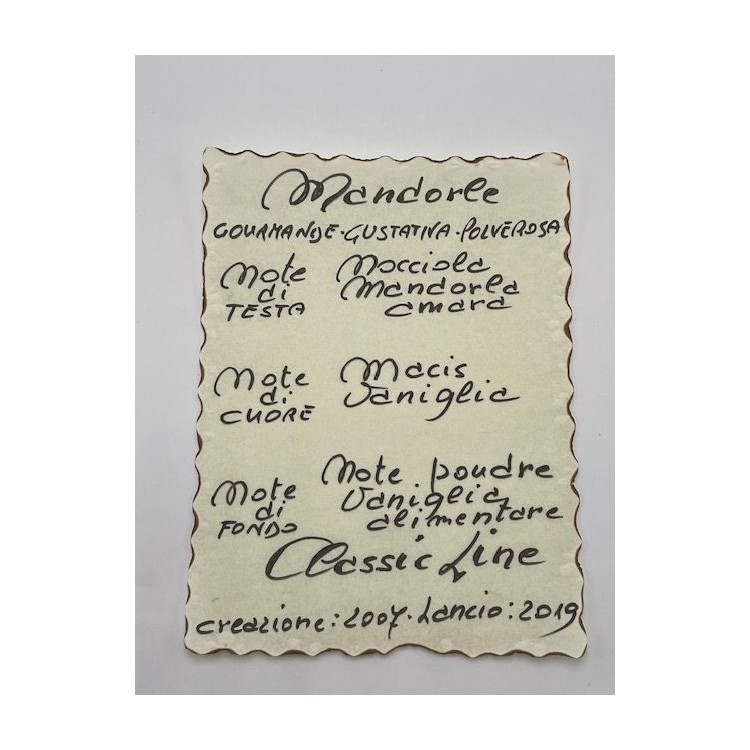 Mandorle
GOURMANDE · GUSTATIVA · POLVEROSA
Note di TESTA
Nocciola
Mandorla
amara
Note di CUORE
Macis
Vaniglia
Note di FONDO
Note poudre
Vaniglia
alimentare
Classic Line
creazione: 2007 · Lancio: 2019